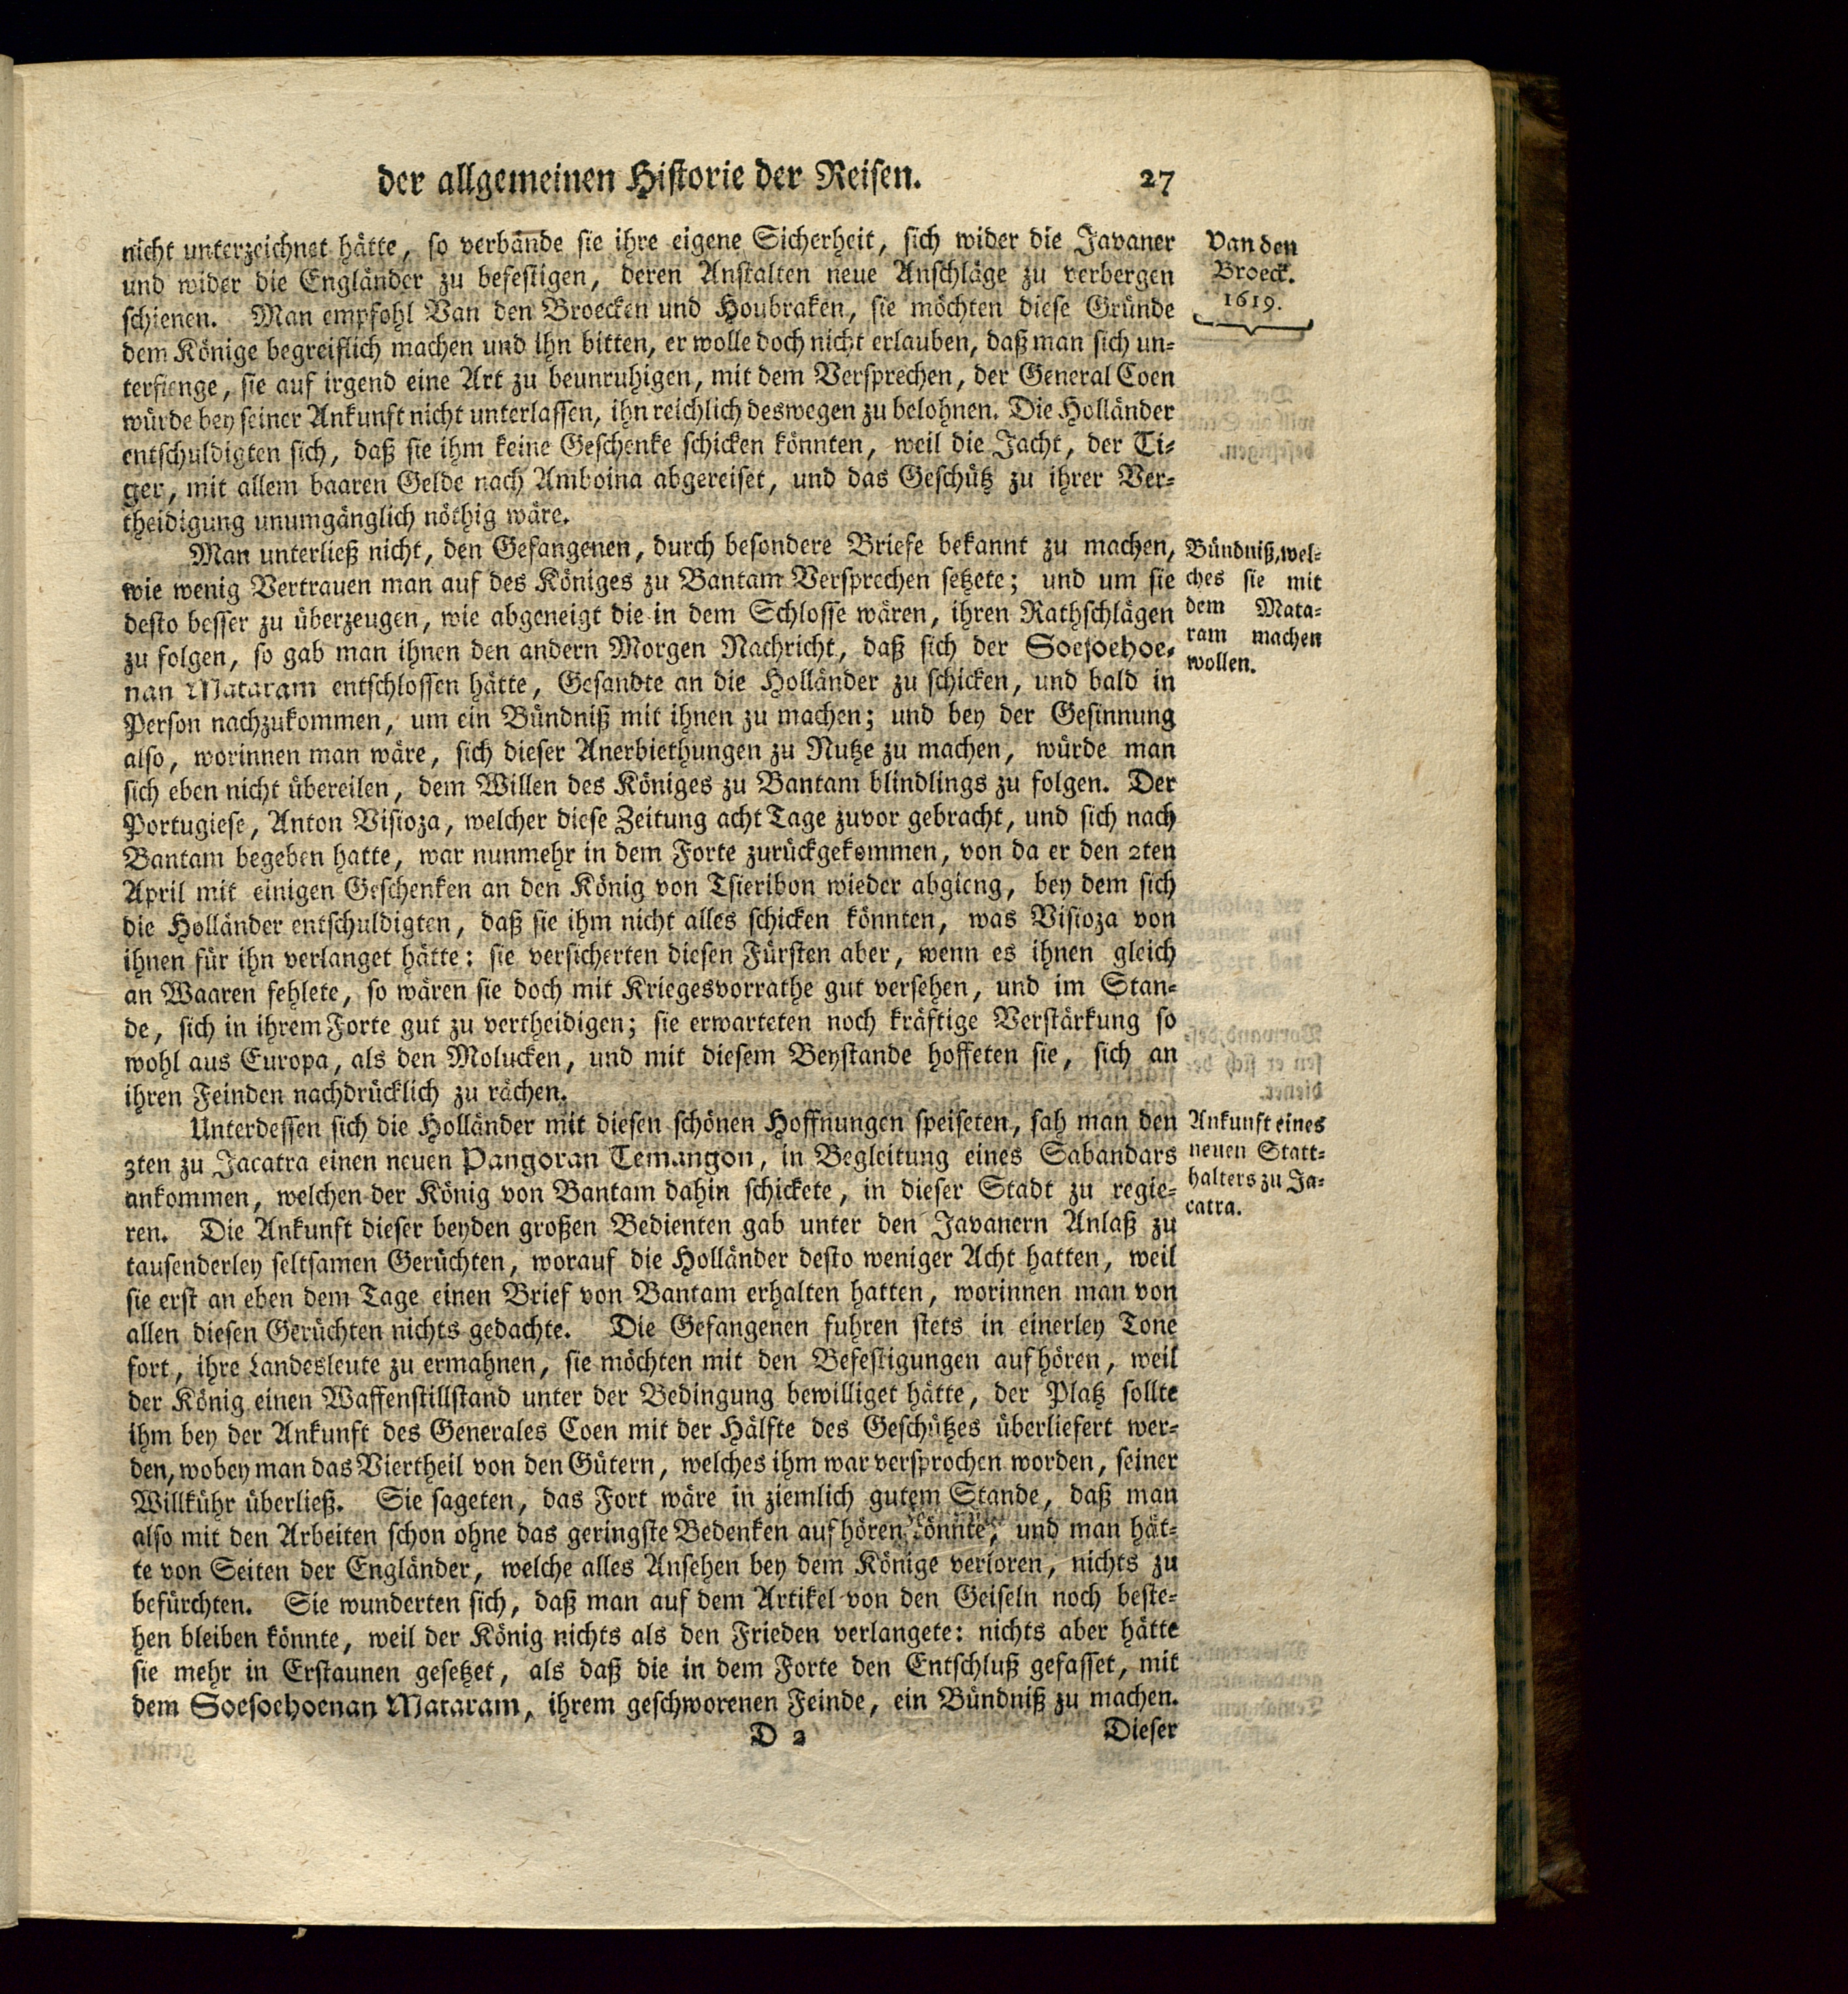 der allgemeinen Historie der Reisen. 27
nicht unterzeichnet hätte, so verbände sie ihre eigene Sicherheit, sich wider die Javaner
und wider die Engländer zu befestigen, deren Anstalten neue Anschläge zu verbergen
schienen. Man empfohl Van den Broecken und Houbraken, sie möchten diese Gründe
dem Könige begreiflich machen und ihn bitten, er wolle doch nicht erlauben, daß man sich un-
terfienge, sie auf irgend eine Art zu beunruhigen, mit dem Versprechen, der General Coen
würde bey seiner Ankunft nicht unterlassen, ihn reichlich deswegen zu belohnen. Die Holländer
entschuldigten sich, daß sie ihm keine Geschenke schicken könnten, weil die Jacht, der Ti-
ger, mit allem baaren Gelde nach Amboina abgereiset, und das Geschütz zu ihrer Ver-
theidigung unumgänglich nöthig wäre.
Van den
Broeck.
1619.
Man unterließ nicht, den Gefangenen, durch besondere Briefe bekannt zu machen,
wie wenig Vertrauen man auf des Königes zu Bantam Versprechen setzete; und um sie
desto besser zu überzeugen, wie abgeneigt die in dem Schlosse wären, ihren Rathschlägen
zu folgen, so gab man ihnen den andern Morgen Nachricht, daß sich der Soesoehoe-
nan Mataram entschlossen hätte, Gesandte an die Holländer zu schicken, und bald in
Person nachzukommen, um ein Bündniß mit ihnen zu machen; und bey der Gesinnung
also, worinnen man wäre, sich dieser Anerbiethungen zu Nutze zu machen, würde man
sich eben nicht übereilen, dem Willen des Königes zu Bantam blindlings zu folgen. Der
Portugiese, Anton Visioza, welcher diese Zeitung acht Tage zuvor gebracht, und sich nach
Bantam begeben hatte, war nunmehr in dem Forte zurückgekommen, von da er den 2ten
April mit einigen Geschenken an den König von Tsieribon wieder abgieng, bey dem sich
die Holländer entschuldigten, daß sie ihm nicht alles schicken könnten, was Visioza von
ihnen für ihn verlanget hätte: sie versicherten diesen Fürsten aber, wenn es ihnen gleich
an Waaren fehlete, so wären sie doch mit Kriegesvorrathe gut versehen, und im Stan-
de, sich in ihrem Forte gut zu vertheidigen; sie erwarteten noch kräftige Verstärkung so
wohl aus Europa, als den Molucken, und mit diesem Beystande hoffeten sie, sich an
ihren Feinden nachdrücklich zu rächen.
Bündniß, wel-
ches sie mit
dem Mata-
ram machen
wollen.
Unterdessen sich die Holländer mit diesen schönen Hoffnungen speiseten, sah man den
3ten zu Jacatra einen neuen Pangoran Temangon, in Begleitung eines Sabandars
ankommen, welchen der König von Bantam dahin schickete, in dieser Stadt zu regie-
ren. Die Ankunft dieser beyden großen Bedienten gab unter den Javanern Anlaß zu
tausenderley seltsamen Gerüchten, worauf die Holländer desto weniger Acht hatten, weil
sie erst an eben dem Tage einen Brief von Bantam erhalten hatten, worinnen man von
allen diesen Gerüchten nichts gedachte. Die Gefangenen fuhren stets in einerley Tone
fort, ihre Landesleute zu ermahnen, sie möchten mit den Befestigungen aufhören, weil
der König einen Waffenstillstand unter der Bedingung bewilliget hätte, der Platz sollte
ihm bey der Ankunft des Generales Coen mit der Hälfte des Geschützes überliefert wer-
den, wobey man das Viertheil von den Gütern, welches ihm war versprochen worden, seiner
Willkühr überließ. Sie sageten, das Fort wäre in ziemlich gutem Stande, daß man
also mit den Arbeiten schon ohne das geringste Bedenken aufhören könnte, und man hät-
te von Seiten der Engländer, welche alles Ansehen bey dem Könige verloren, nichts zu
befürchten. Sie wunderten sich, daß man auf dem Artikel von den Geiseln noch beste-
hen bleiben könnte, weil der König nichts als den Frieden verlangete: nichts aber hätte
sie mehr in Erstaunen gesetzet, als daß die in dem Forte den Entschluß gefasset, mit
dem Soesoehoenan Mataram, ihrem geschworenen Feinde, ein Bündniß zu machen.
Ankunft eines
neuen Statt-
halters zu Ja-
catra.
D 2 Dieser